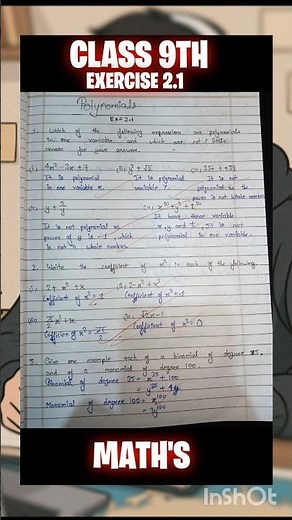 CLASS 9TH
EXERCISE 2.1
Polynomials
Ex=2.1
1. Which of the following expression are polynomials
in one variable and which are not? State
reason for your answer.
It is polynomial
in one variable x.
It is polynomial
variable Y.
It is not
polynomial as the
power is not whole number
It is not polynomial as
power of y is -1, which
is not a whole number.
It have three variable
x, y and t, It is not
polynomial in one variable.
2. Write the coefficient of x² in each of the following.
(i) 2 + x² + x
Coefficient of x² = 1
Coefficient of x² = 0
3. Give one example each of a binomial of degree 35,
and of a monomial of degree 100
Binomial of degree 35 = x³⁵ + 100
Monomial of degree 100 = x¹⁰⁰
= y¹⁰⁰
MATH'S
InShOt